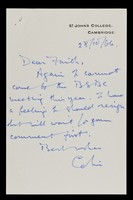 ST JOHN'S COLLEGE,
CAMBRIDGE
Dear Faith,
Again I cannot
come to the B.S.P.C
meeting this year. I have
a feeling I should resign
but will wait for your
comment first.
Best wishes
Colin